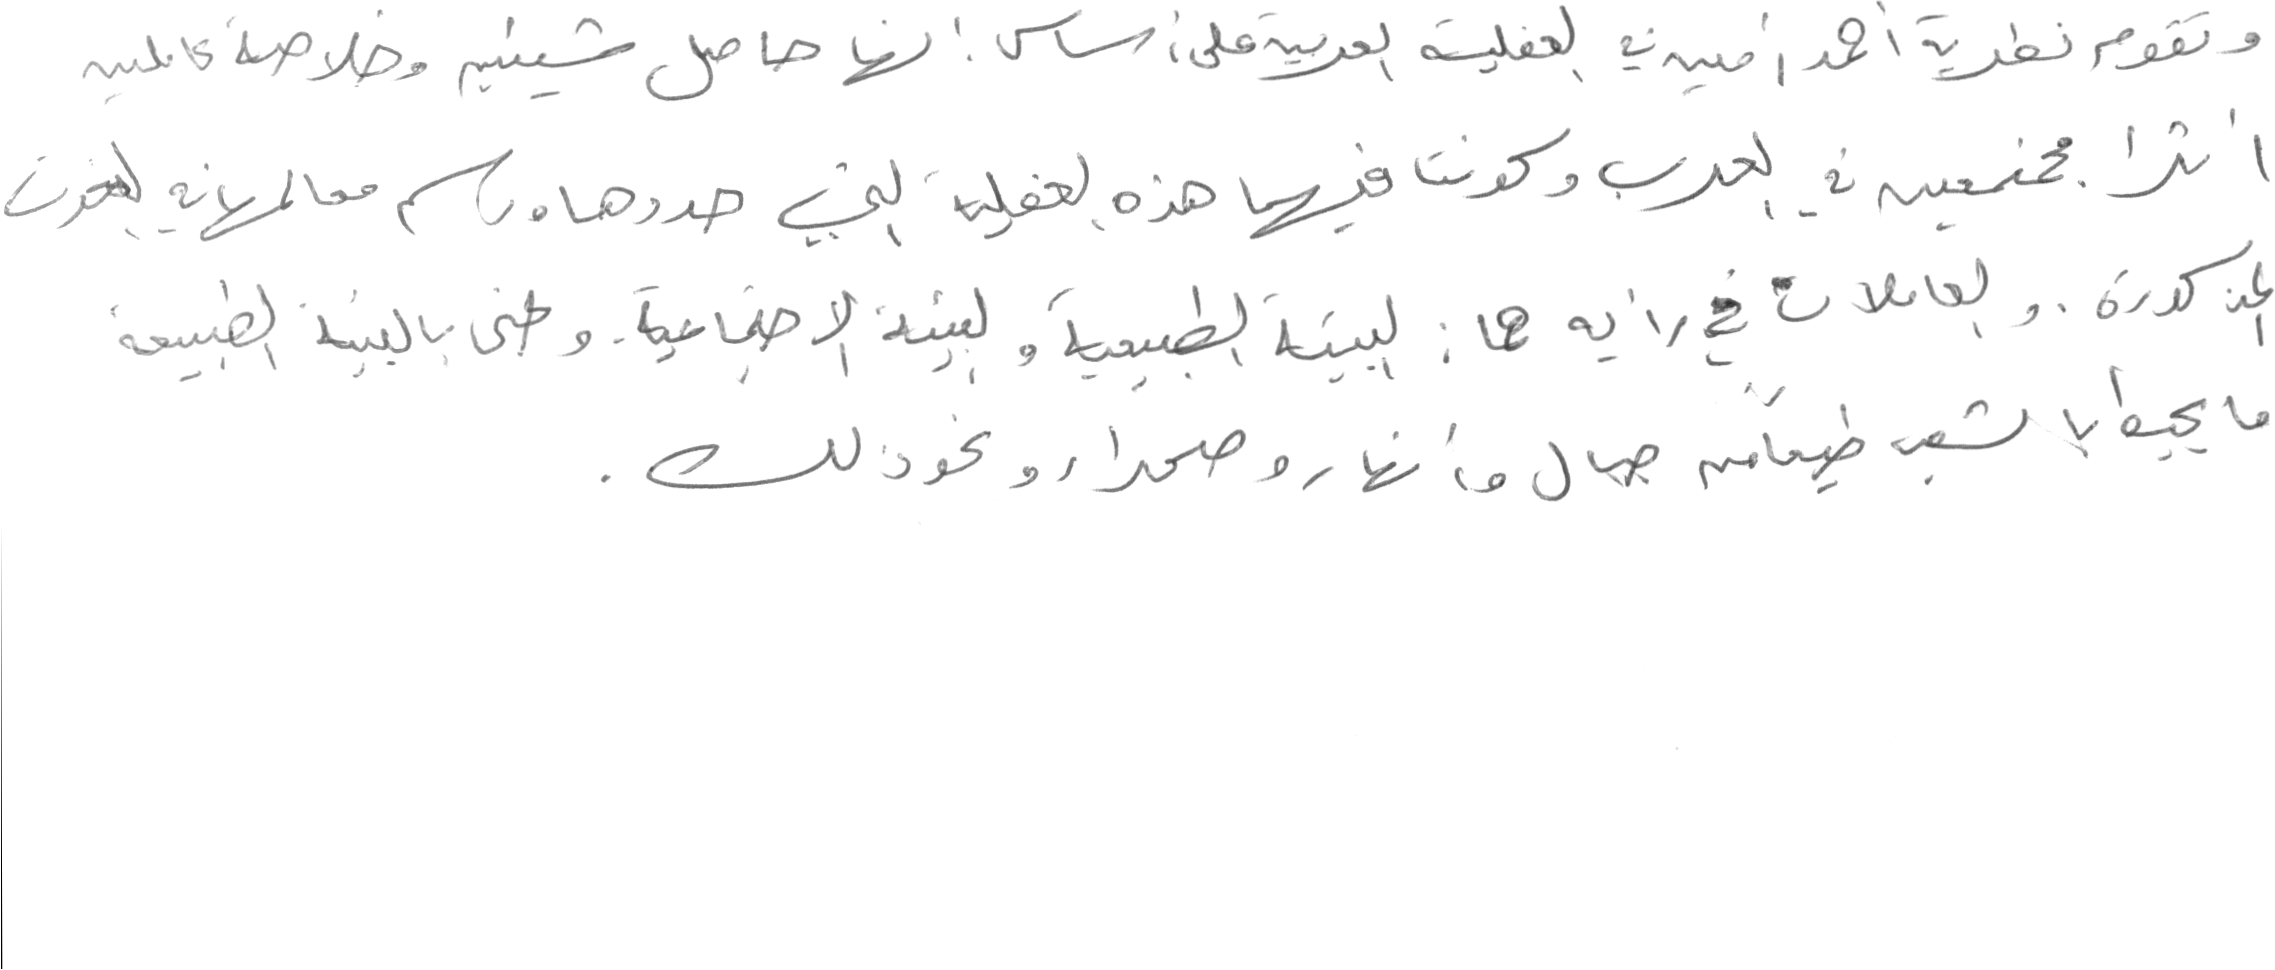 وتقوم نظرية أحمد أمين في العقلية العربية على أساس إنها حاصل شيئين وخلاصة عاملين
أثرا مجتمعين في العرب وكونتا فيهما هذه العقلية التي حددها ورسم معالمها في
المذكورة. والعاملان في رأيه هما: البيئة الطبيعية والبيئة الإجتماعية. وعنى بالبيئة الطبيعة
ما يحيط بالشعب طبيعيا من جبال وأنهار وصحراء ونحو ذلك.